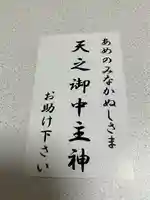 あめのみなかぬしさま
天之御中主神
お助け下さい